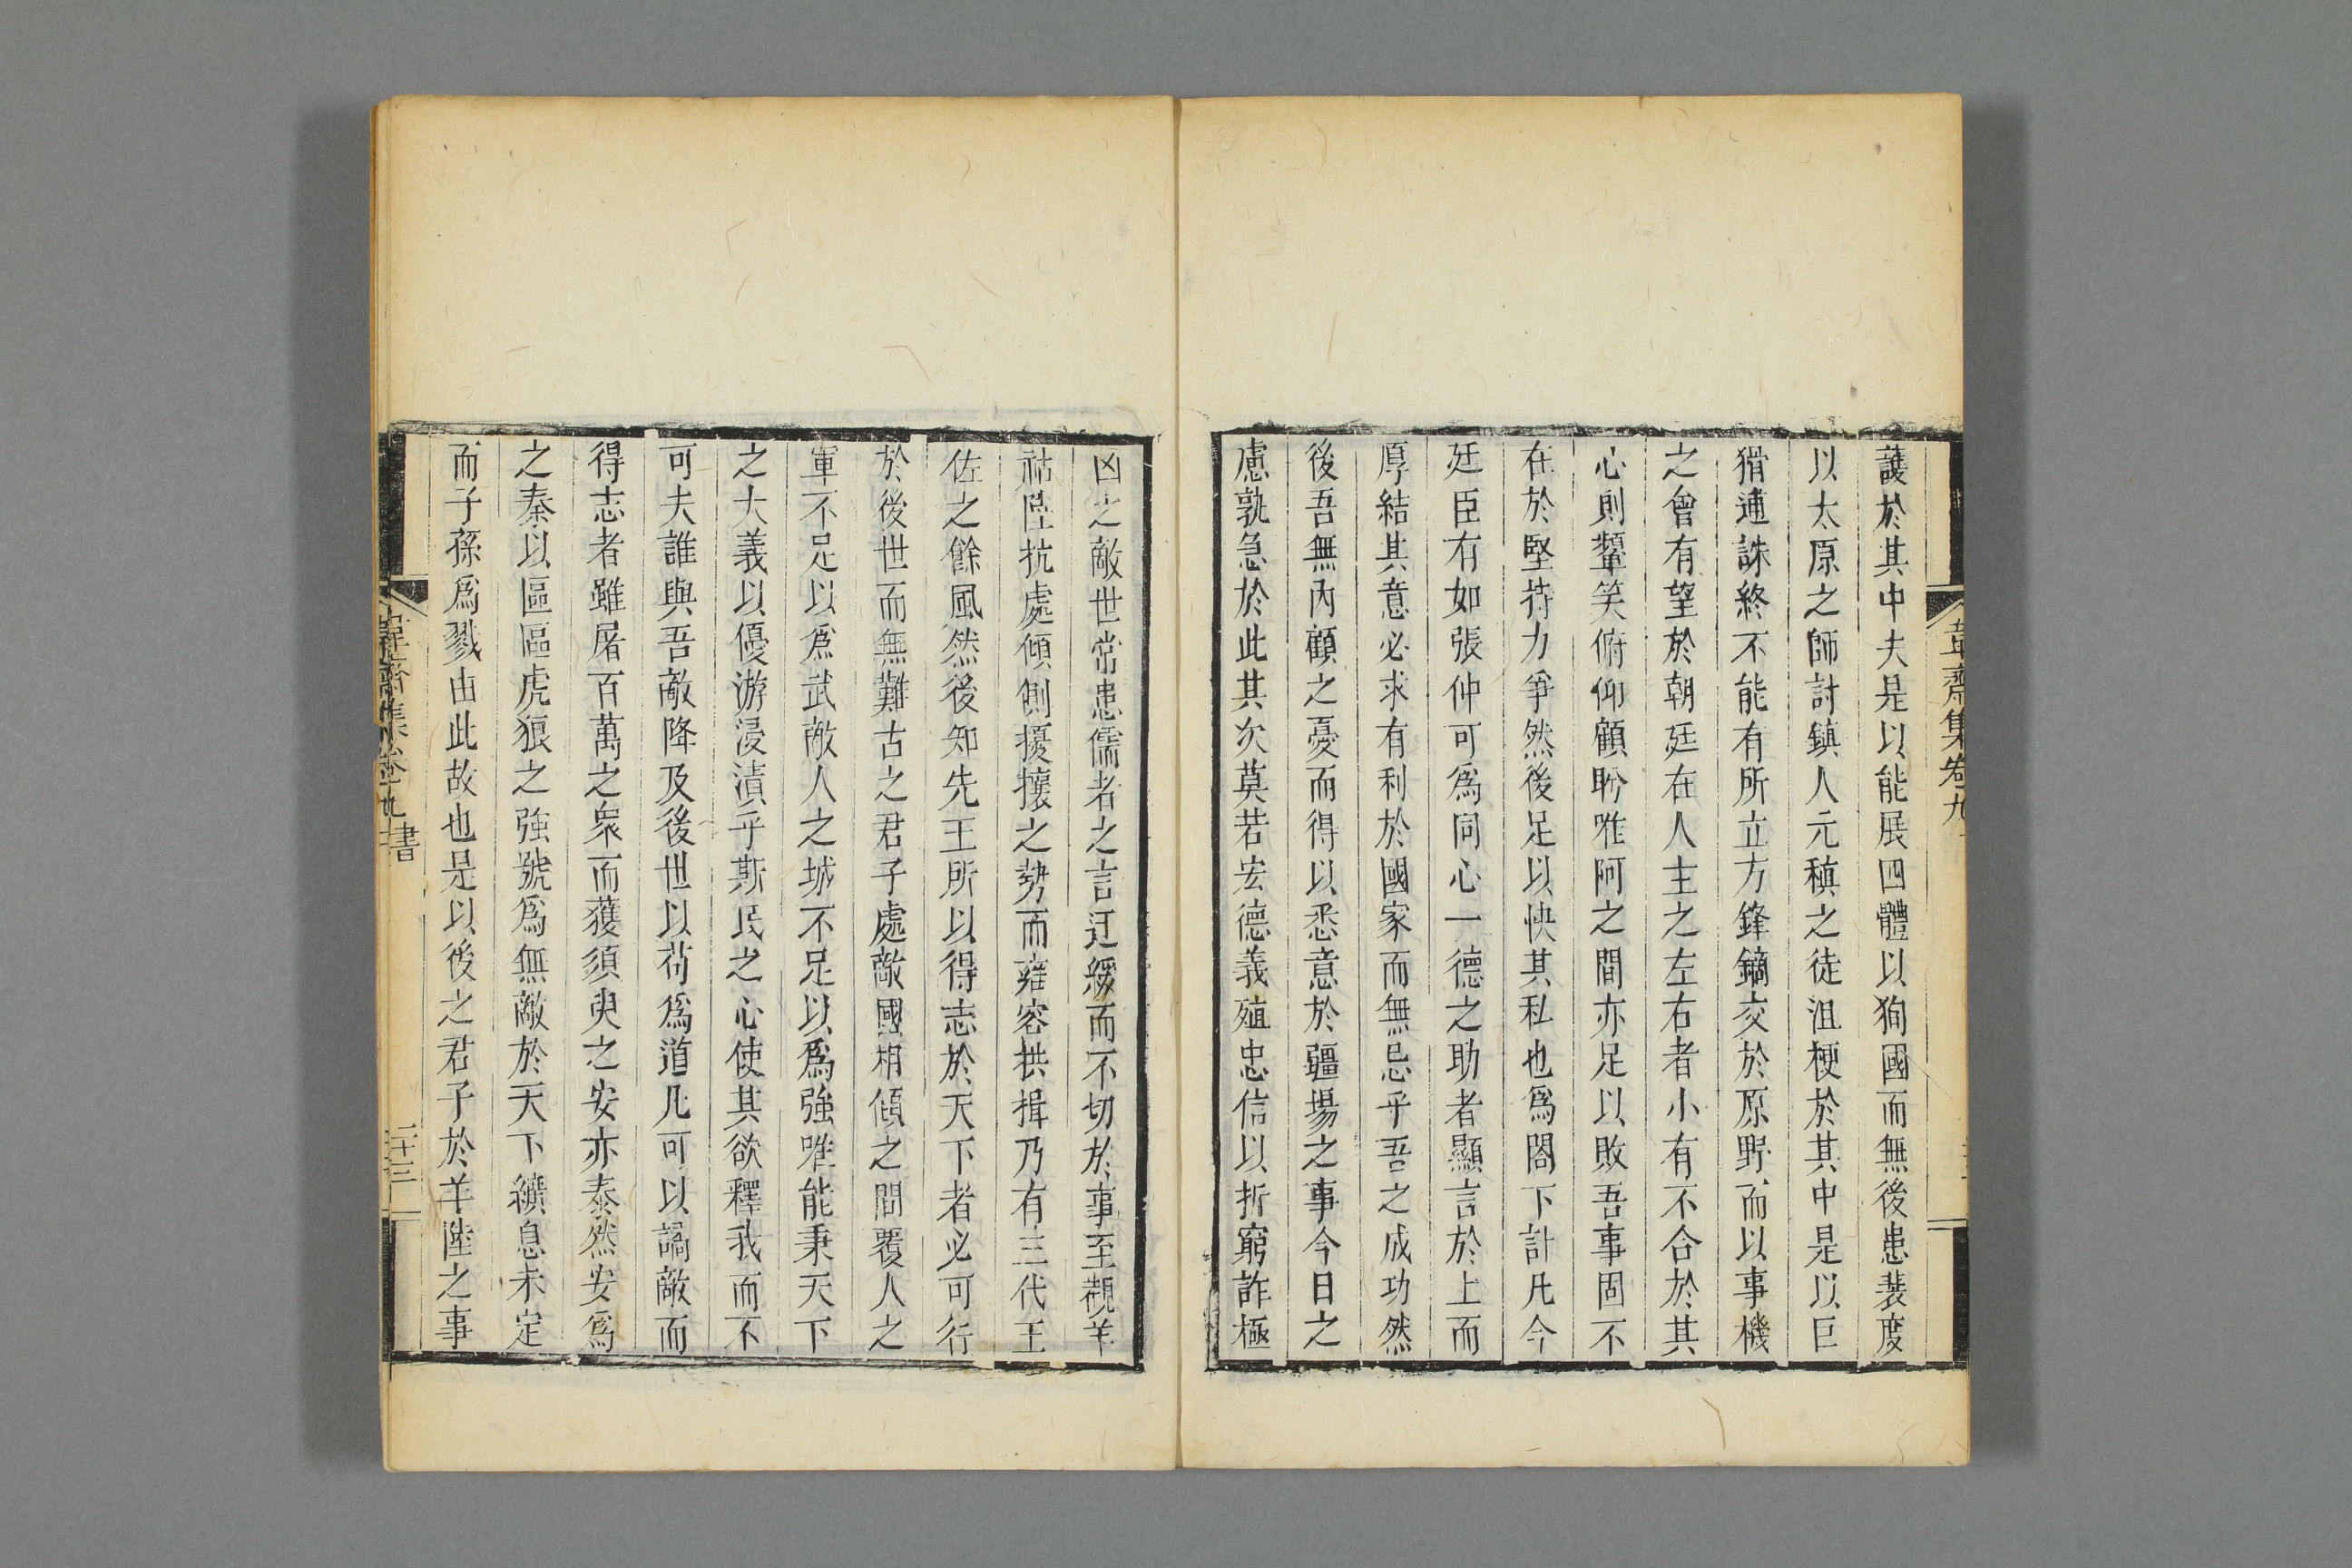 護於其中夫是以能展四體以狥國而無後患裴度
以太原之師討鎮人元稹之徒沮梗於其中是以巨
猾逋誅終不能有所立方鋒鏑交於原野而以事機
之會有望於朝廷在人主之左右者小有不合於其
心則顰笑俯仰顧盻唯阿之間亦足以敗吾事固不
在於堅持力爭然後足以快其私也爲閤下計凡今
廷臣有如張仲可爲同心一德之助者顯言於上而
厚結其意必求有利於國家而無忌乎吾之成功然
後吾無內顧之憂而得以悉意於疆場之事今日之
慮孰急於此其次莫若宏德義殖忠信以折窮詐極
凶之敵世常患儒者之言迂緩而不切於事至觀羊
祜陸抗處傾側擾攘之勢而雍容拱揖乃有三代王
佐之餘風然後知先王所以得志於天下者必可行
於後世而無難古之君子處敵國相傾之間覆人之
軍不足以爲武敵人之城不足以爲強唯能秉天下
之大義以優游浸漬乎斯民之心使其欲釋我而不
可夫誰與吾敵降及後世以苟爲道凡可以譎敵而
得志者雖屠百萬之衆而獲須臾之安亦泰然安爲
之秦以區區虎狼之強號爲無敵於天下纊息未定
而子孫爲戮由此故也是以後之君子於羊陸之事
韋齋集卷九 書
二十三